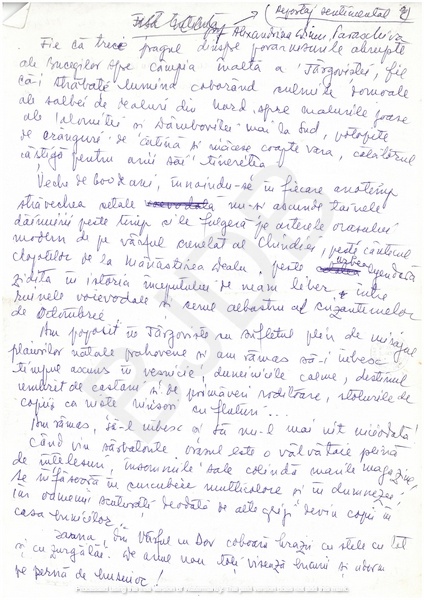 (Reportaj sentimental) 2)
prof. Alexandrina Paraschiva
Fie că treci pragul dinspre povârnișurile abrupte
ale Bucegilor spre câmpia înaltă a Târgoviștei, fie
că-i străbate lumina coborând culmile domoale
ale salbei de dealuri din nord, spre malurile joase
ale Ialomiței și Dâmboviței mai la sud,
de crânguri de cătină și măcese coapte vara, călătorul
câștigă pentru anii săi tinerețea
Veche de 600 ani, înnoindu-se în fiecare anotimp
străvechea cetate nu-și ascunde tainele
dăinuirii peste timp și le fulgeră pe arterele orașului
modern de pe vârful crenelat al Chindiei, peste cântecul
clopotelor de la Mănăstirea Dealu, peste legendă
zidită în istoria începutului de neam liber între
ruinele voievodale și cerul albastru al crizantemelor
de Octombrie
Am poposit în Târgoviște cu sufletul plin de mirajul
plaiurilor natale prahovene și am rămas să-i iubesc
timpul ascuns în veșnicie, duminicile calme, destinul
de castani și de primăveri roditoare, stolurile de
copii ca niște ninsori cu fluturi...
Am rămas, să-l iubesc și să nu-l mai uit niciodată!
Când vin sărbătorile orașul este o vâlvătaie plină
de înțelesuri, insomniile sale colindă marile magazine,
se înfășoară în curcubeie multicolore și în dumnezei,
iar oamenii scuturați deodată de alte griji devin copii în
casa bunicilor.
Iarna, din Vârful cu Dor coboară brazii cu stele cu tot
și cu zurgălăi. De acum nou toți visează bucurii și adorm
pe pernă de busuioc!
BJDB